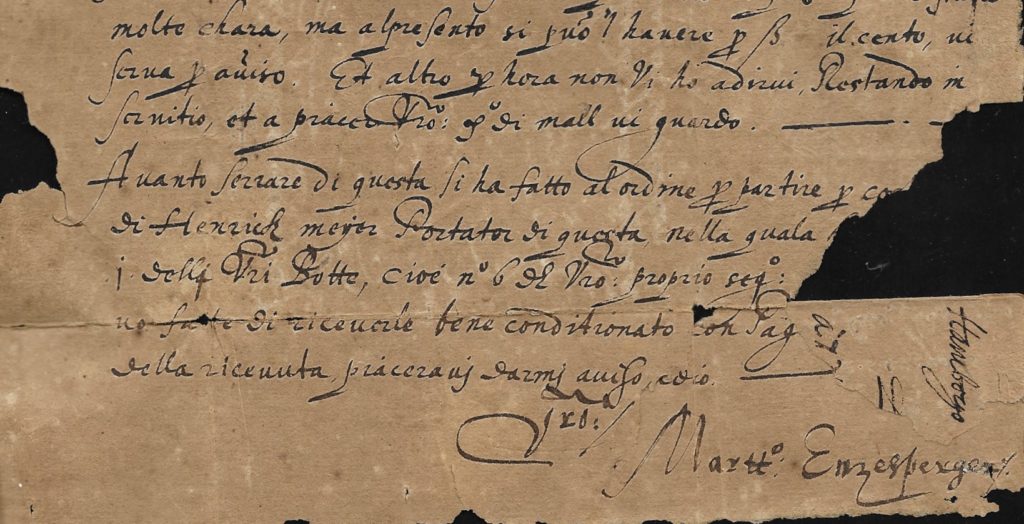 molte chara, ma alpresento si può l havere p ß il cento, vi
serva p aviso. Et altro p hora non vi ho adirvi, Restando in
servitio, et a piacer Vro: di mall vi guardo.
Avanto serrare di questa si ha fatto al ordine p partire p
di Henrich meyer Portator di questa, nella quala
j. dellj Vri Botte, cioé nº 6 del Vro: proprio segº:
di riceverle bene conditionato con Pag
della ricevuta, piaceravj darmj aviso,
Vro:
Martº: Enzesperger
Hamborgo